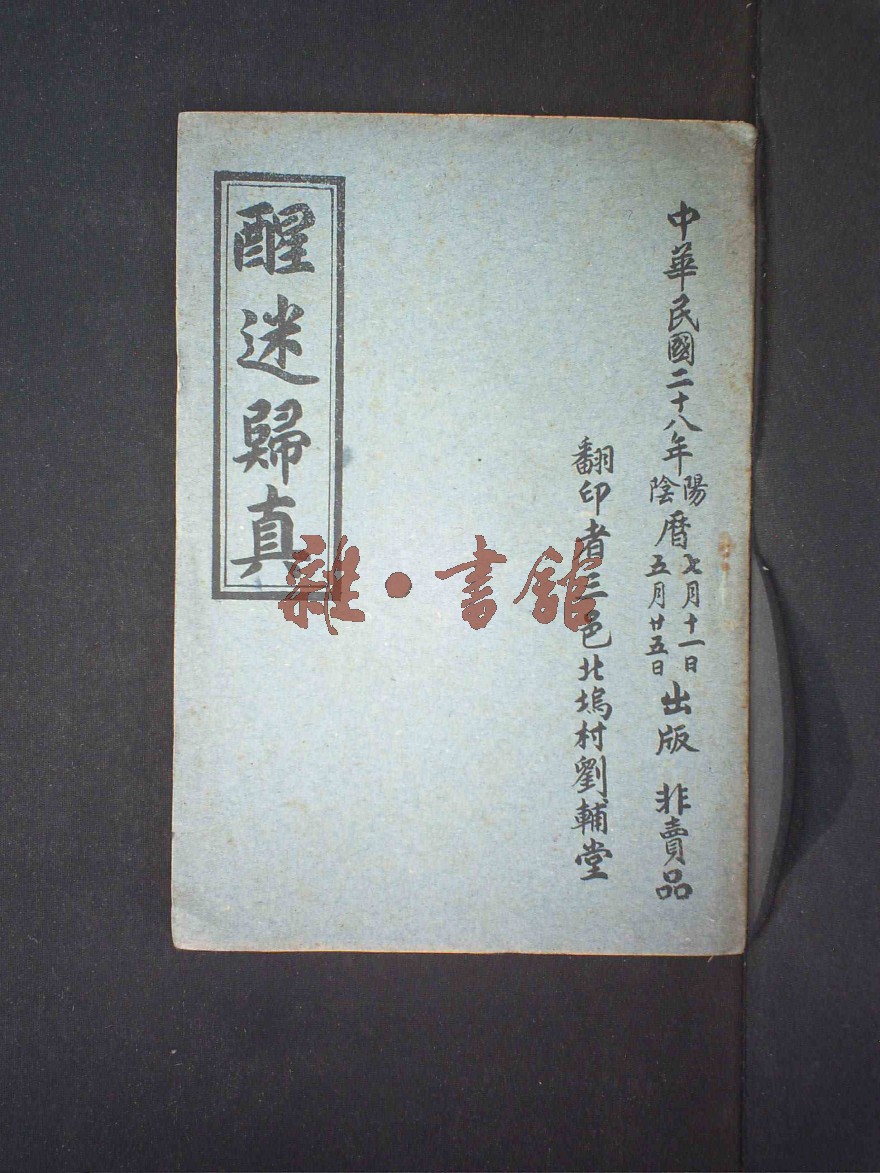 中華民國二十八年陽陰曆七月十一日五月廿五日出版 非賣品
翻印者三邑北塢村劉輔堂
醒迷歸真
雜·書館